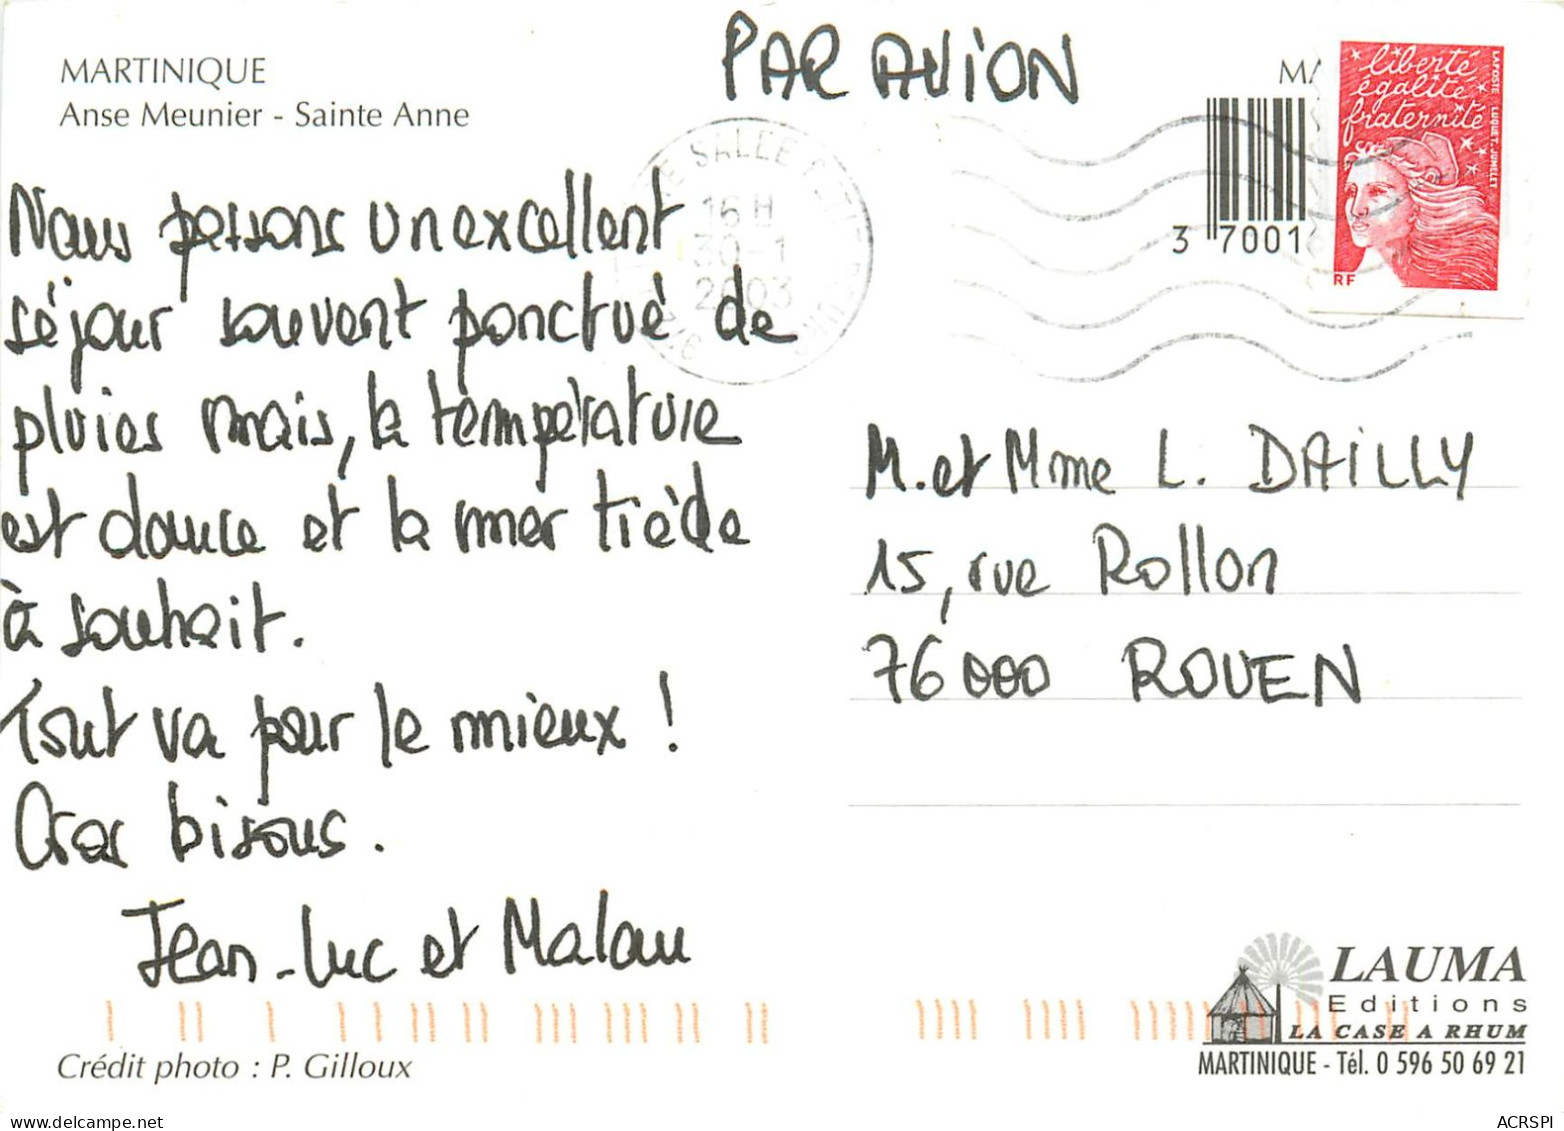 MARTINIQUE
Anse Meunier - Sainte Anne
PAR AVION
Nous passons un excellent
séjour souvent ponctué de
pluies mais, la température
est douce et la mer tiède
à souhait.
Tout va pour le mieux !
Gros bisous.
Jean-Luc et Malou
Crédit photo : P. Gilloux
16 H
30-1
2003
MA
3 7001
liberté
égalité
fraternité
LA POSTE LUQUET. JUMELET
RF
M. et Mme L. DAILLY
15, rue Rollon
76000 ROUEN
LAUMA
Editions
LA CASE A RHUM
MARTINIQUE - Tél. 0 596 50 69 21
delcampe.net
ACRSPI